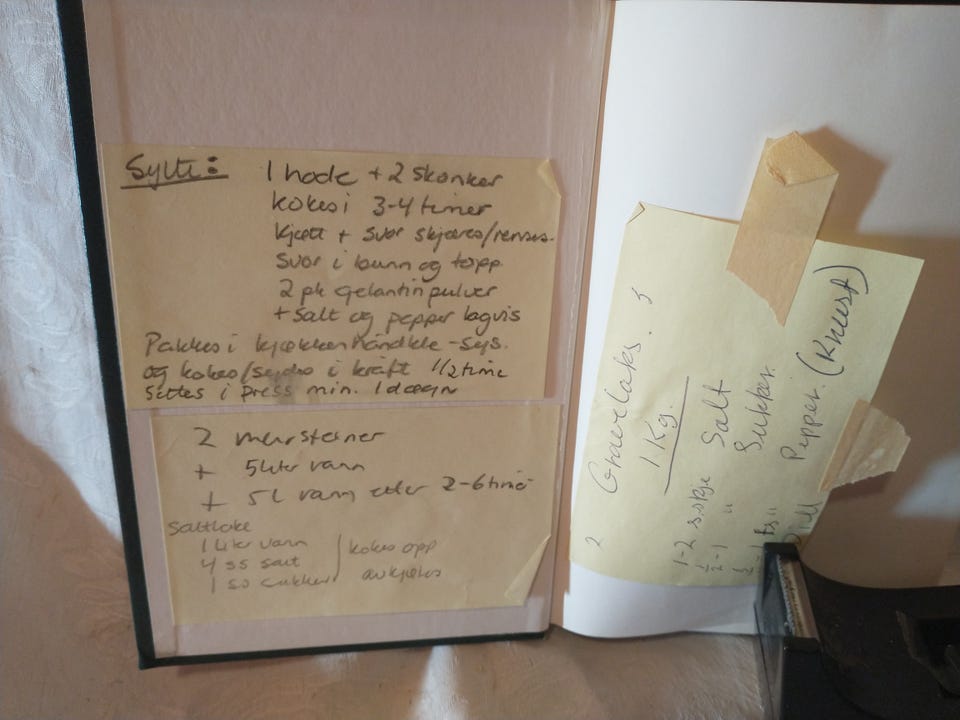 Sylte: 1 hode + 2 skanker
kokes i 3-4 timer
kjøtt + svor skjæres/renses.
Svor i bunn og topp
2 pk gelantinpulver
+ salt og pepper lagvis
Pakkes i kjøkkenhåndkle - sys.
og kokes/ i kraft 1/2 time
Settes i press min. 1 døgn
2 mursteiner
+ 5 liter vann
+ 5 l vann etter 2-6 timer
Saltlake
1 liter vann
4 ss salt
1 ss sukker
kokes opp
avkjøles
Gravelaks.
1 Kg.
1-2 s.skje Salt
1/2-1 " Sukker.
1/2-1 ts " Pepper. (Knust)
Dill